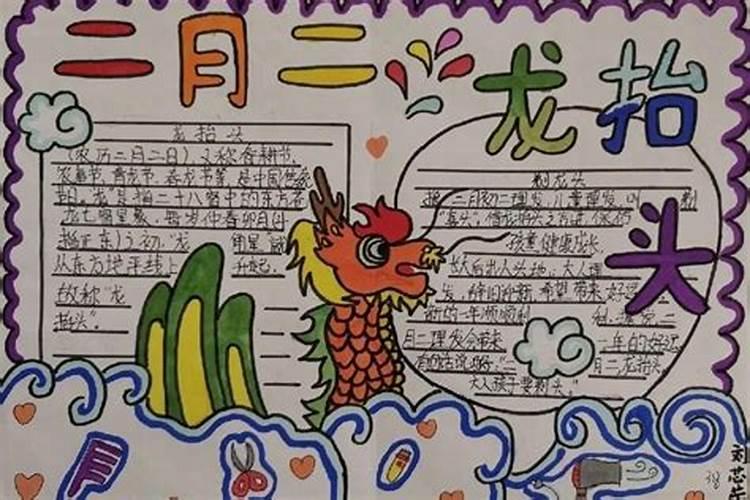 二月二 龙抬头
龙抬头
(农历二月二日),又称春耕节、
农事节、青龙节、春龙节等,是中国传统
节日。"龙"是指二十八宿中的东方苍
龙七宿星象,每岁仲春卯月初
指正东),之初,"龙角星"就
从东方地平线上升起,
故称"龙
抬头"。
剃龙头
二月初二理发,儿童理发,叫剃
"喜头",借龙抬头之吉时,保佑
孩童健康成长,
长大后出人头地;大人理
发,辞旧迎新,希望带来好运
新的一年顺顺利利
月二理发会带来一年的好运
二月二龙抬头,
大人孩子要剃头。"
刘芯
38